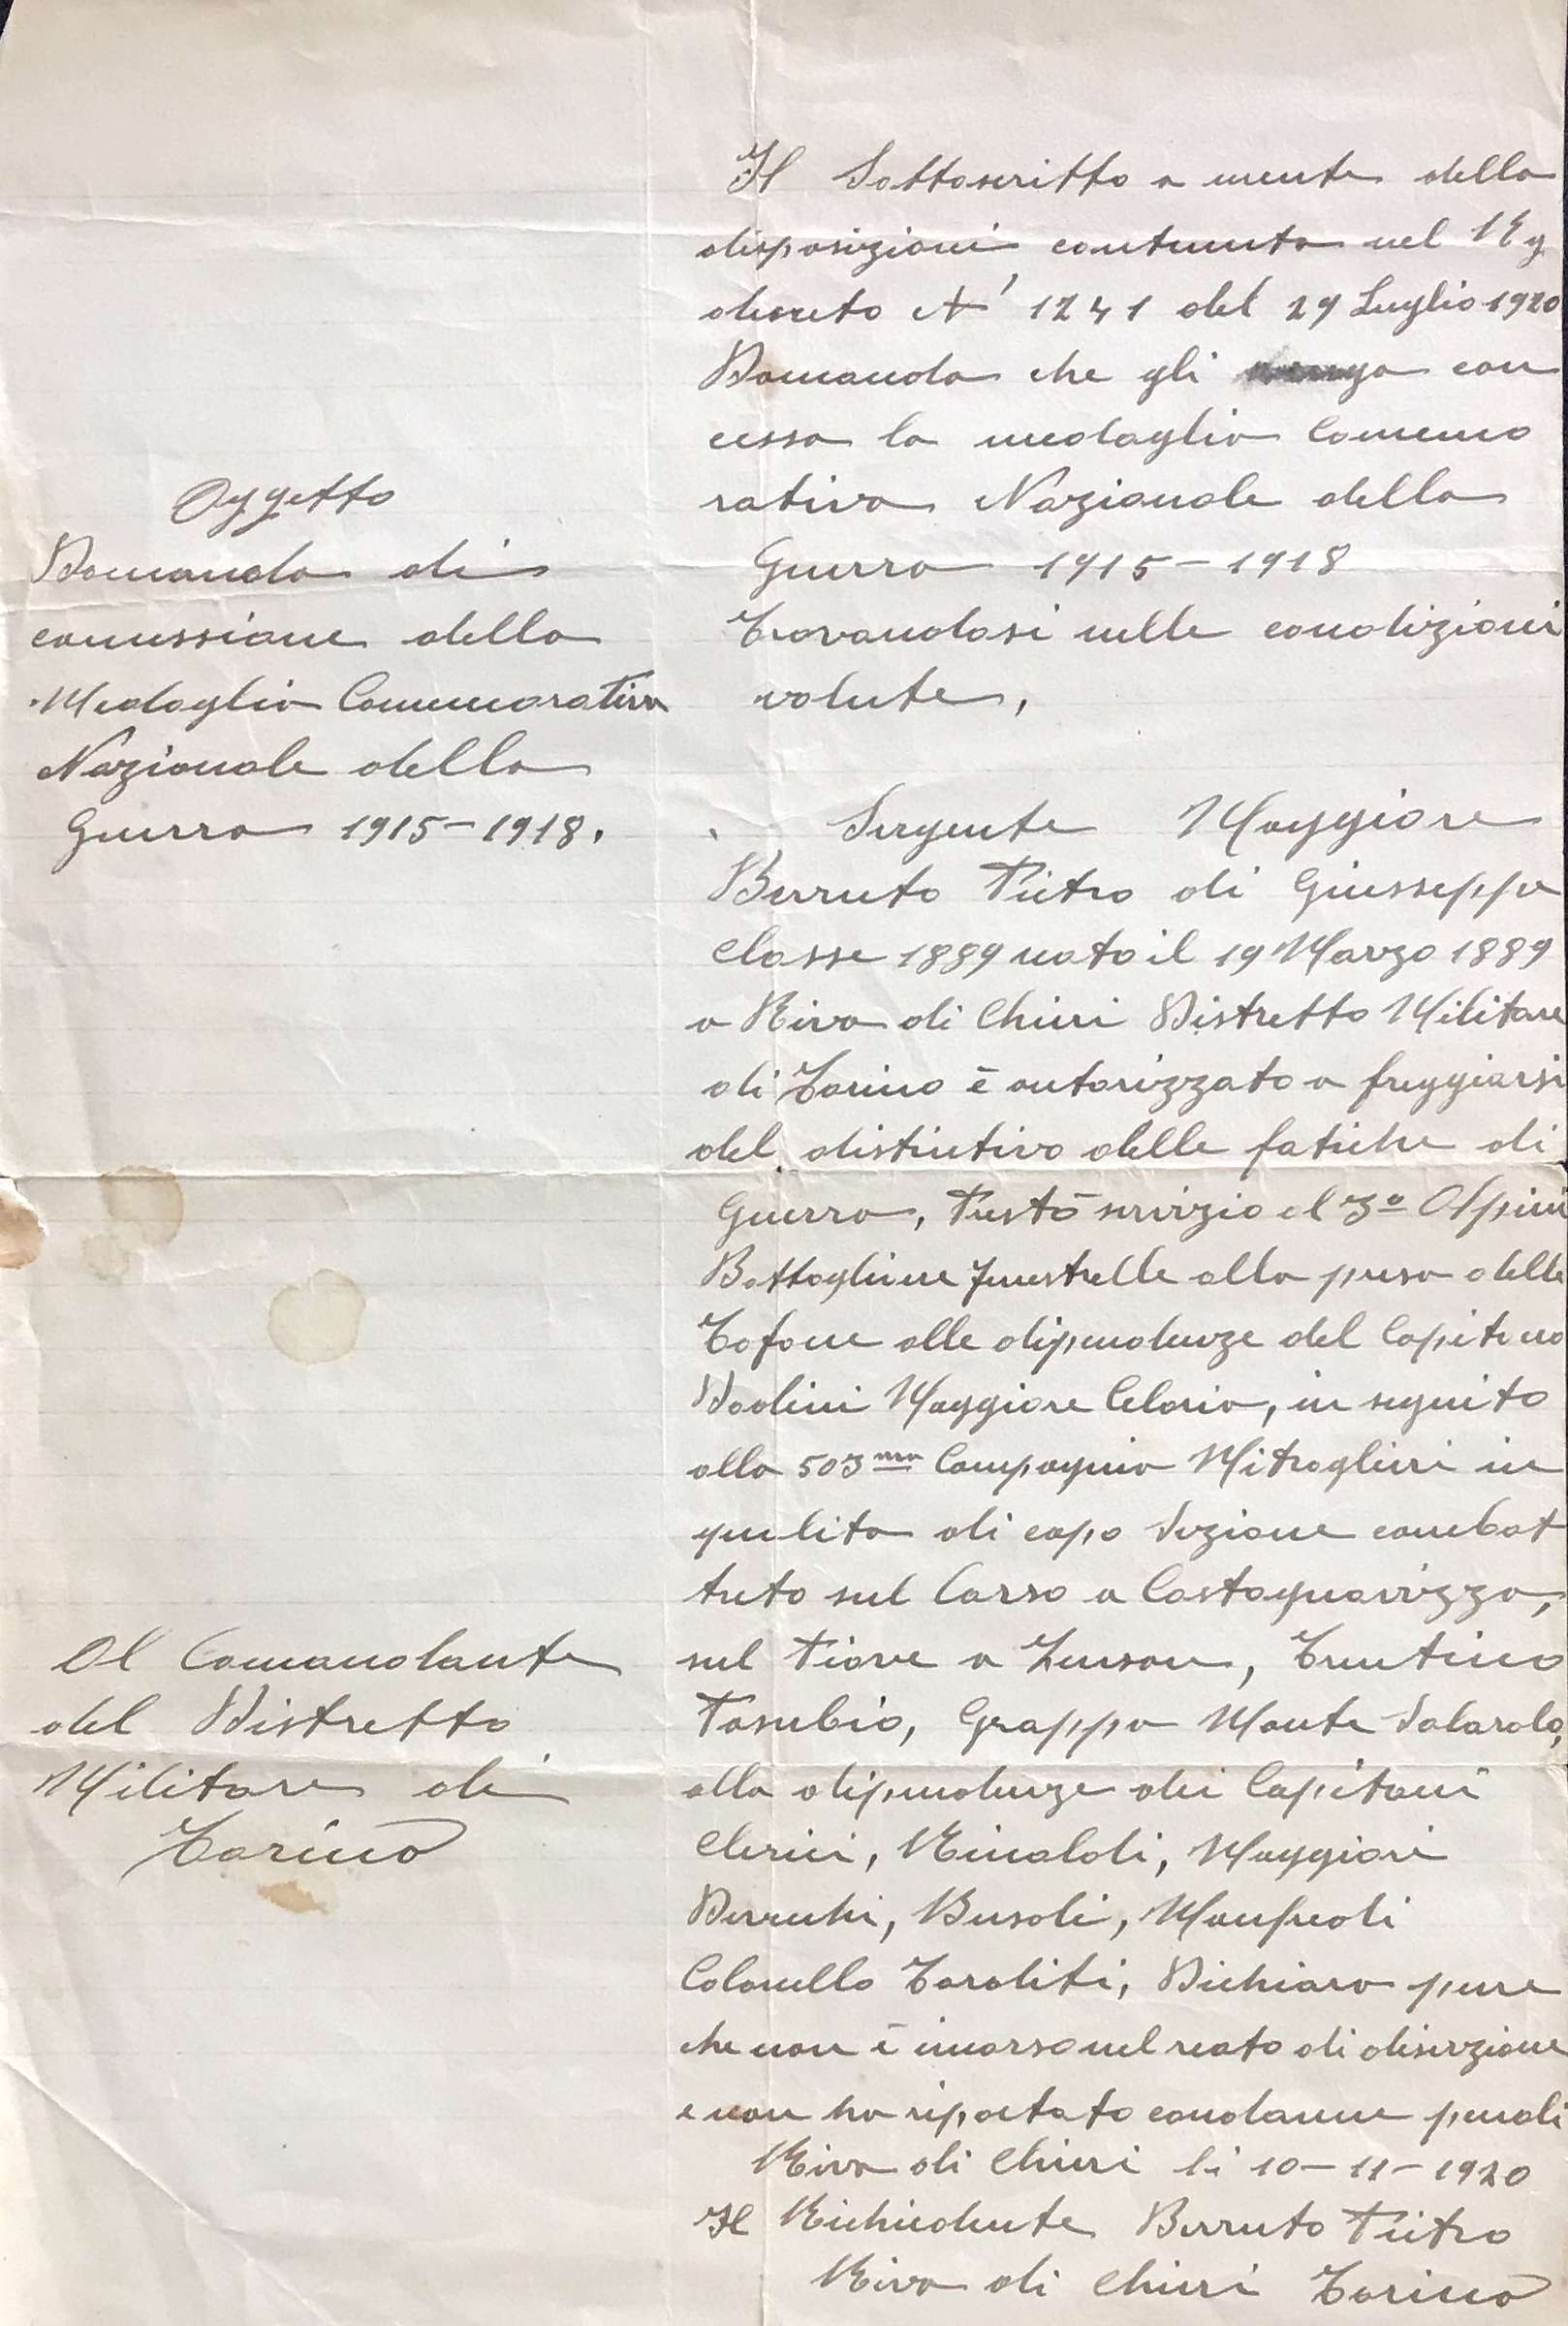 Oggetto
Domanda di
concessione della
Medaglia Commemorativa
Nazionale della
Guerra 1915-1918.
Al Comandante
del Distretto
Militare di
Torino
Il Sottoscritto a mente della
disposizioni contenute nel Reg
decreto N' 1241 del 29 Luglio 1920
Domanda che gli venga con
cessa la medaglia Comemo
rativa Nazionale della
Guerra 1915-1918
Trovandosi nelle condizioni
volute,
Sergente Maggiore
Berruto Pietro di Giusseppe
Classe 1889 nato il 19 Marzo 1889
a Riva di Chieri Distretto Militare
di Torino è autorizzato a freggiarsi
del distintivo delle fatiche di
Guerra, Prestò servizio al 3º Alpini
Battaglione Fenestrelle alla presa delle
Tofane alle dipendenze del Capitano
Maggiore Celoria, in seguito
alla 503ma Compagnia Mitraglieri in
qualita di capo Sezione combat
tuto sul Carso a Castagnavizza,
sul Piave a Zenson, Trentino
Pasubio, Grappa Monte Salarolo,
alla dipendenze dei Capitani
Clerici, Rinaldi, Maggiori
Busoli, Manfredi
Colonello Dichiara pure
che non è incorso nel reato di diserzione
e non ha riportato condanne penali
Riva di Chieri li 10-11-1920
Il Richiedente Berruto Pietro
Riva di Chieri Torino